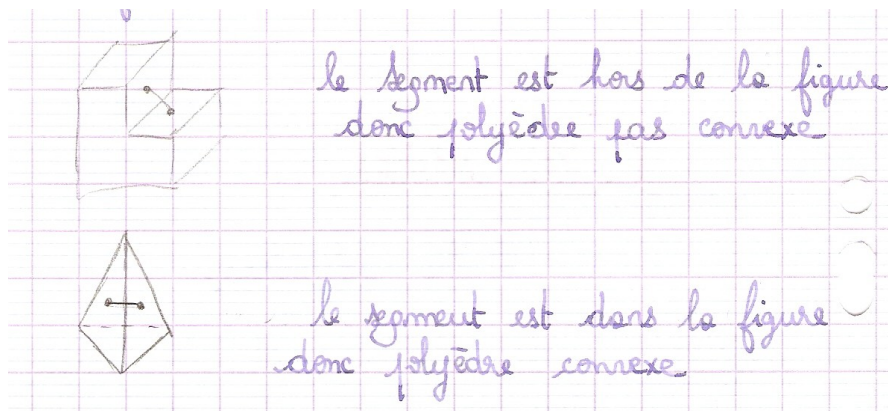 le segment est hors de la figure
donc polyèdre pas convexe
le segment est dans la figure
donc polyèdre convexe